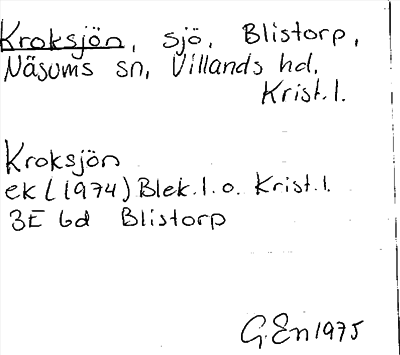 Kroksjön, sjö, Blistorp,
Näsums sn, Villands hd,
Krist. l.
Kroksjön
ek L (1974) Blek. l. o. Krist. l.
3E 6d Blistorp
G. En 1975